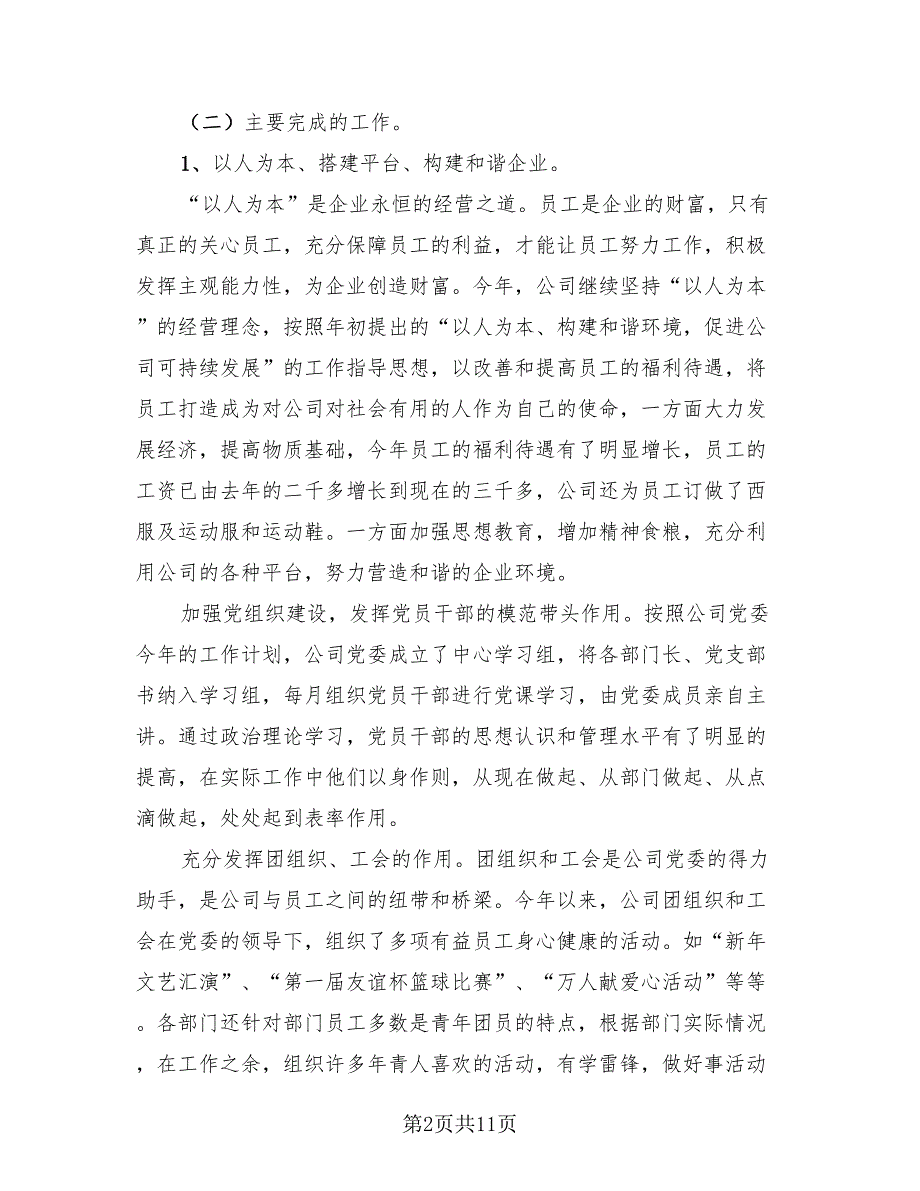 （二）主要完成的工作。
1、以人为本、搭建平台、构建和谐企业。
“以人为本”是企业永恒的经营之道。员工是企业的财富，只有
真正的关心员工，充分保障员工的利益，才能让员工努力工作，积极
发挥主观能力性，为企业创造财富。今年，公司继续坚持“以人为本
”的经营理念，按照年初提出的“以人为本、构建和谐环境，促进公
司可持续发展”的工作指导思想，以改善和提高员工的福利待遇，将
员工打造成为对公司对社会有用的人作为自己的使命，一方面大力发
展经济，提高物质基础，今年员工的福利待遇有了明显增长，员工的
工资已由去年的二千多增长到现在的三千多，公司还为员工订做了西
服及运动服和运动鞋。一方面加强思想教育，增加精神食粮，充分利
用公司的各种平台，努力营造和谐的企业环境。
加强党组织建设，发挥党员干部的模范带头作用。按照公司党委
今年的工作计划，公司党委成立了中心学习组，将各部门长、党支部
书纳入学习组，每月组织党员干部进行党课学习，由党委成员亲自主
讲。通过政治理论学习，党员干部的思想认识和管理水平有了明显的
提高，在实际工作中他们以身作则，从现在做起、从部门做起、从点
滴做起，处处起到表率作用。
充分发挥团组织、工会的作用。团组织和工会是公司党委的得力
助手，是公司与员工之间的纽带和桥梁。今年以来，公司团组织和工
会在党委的领导下，组织了多项有益员工身心健康的活动。如“新年
文艺汇演”、“第一届友谊杯篮球比赛”、“万人献爱心活动”等等
。各部门还针对部门员工多数是青年团员的特点，根据部门实际情况
，在工作之余，组织许多年青人喜欢的活动，有学雷锋，做好事活动
第2页共11页